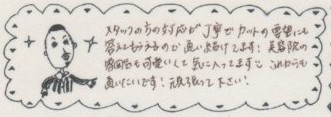 スタッフの方の対応が丁寧でカットの要望にも
答えてもらえるので通い続けてます! 美容院の
雰囲気も可愛いくて気に入ってます これからも
通いたいです! 頑張って下さい!